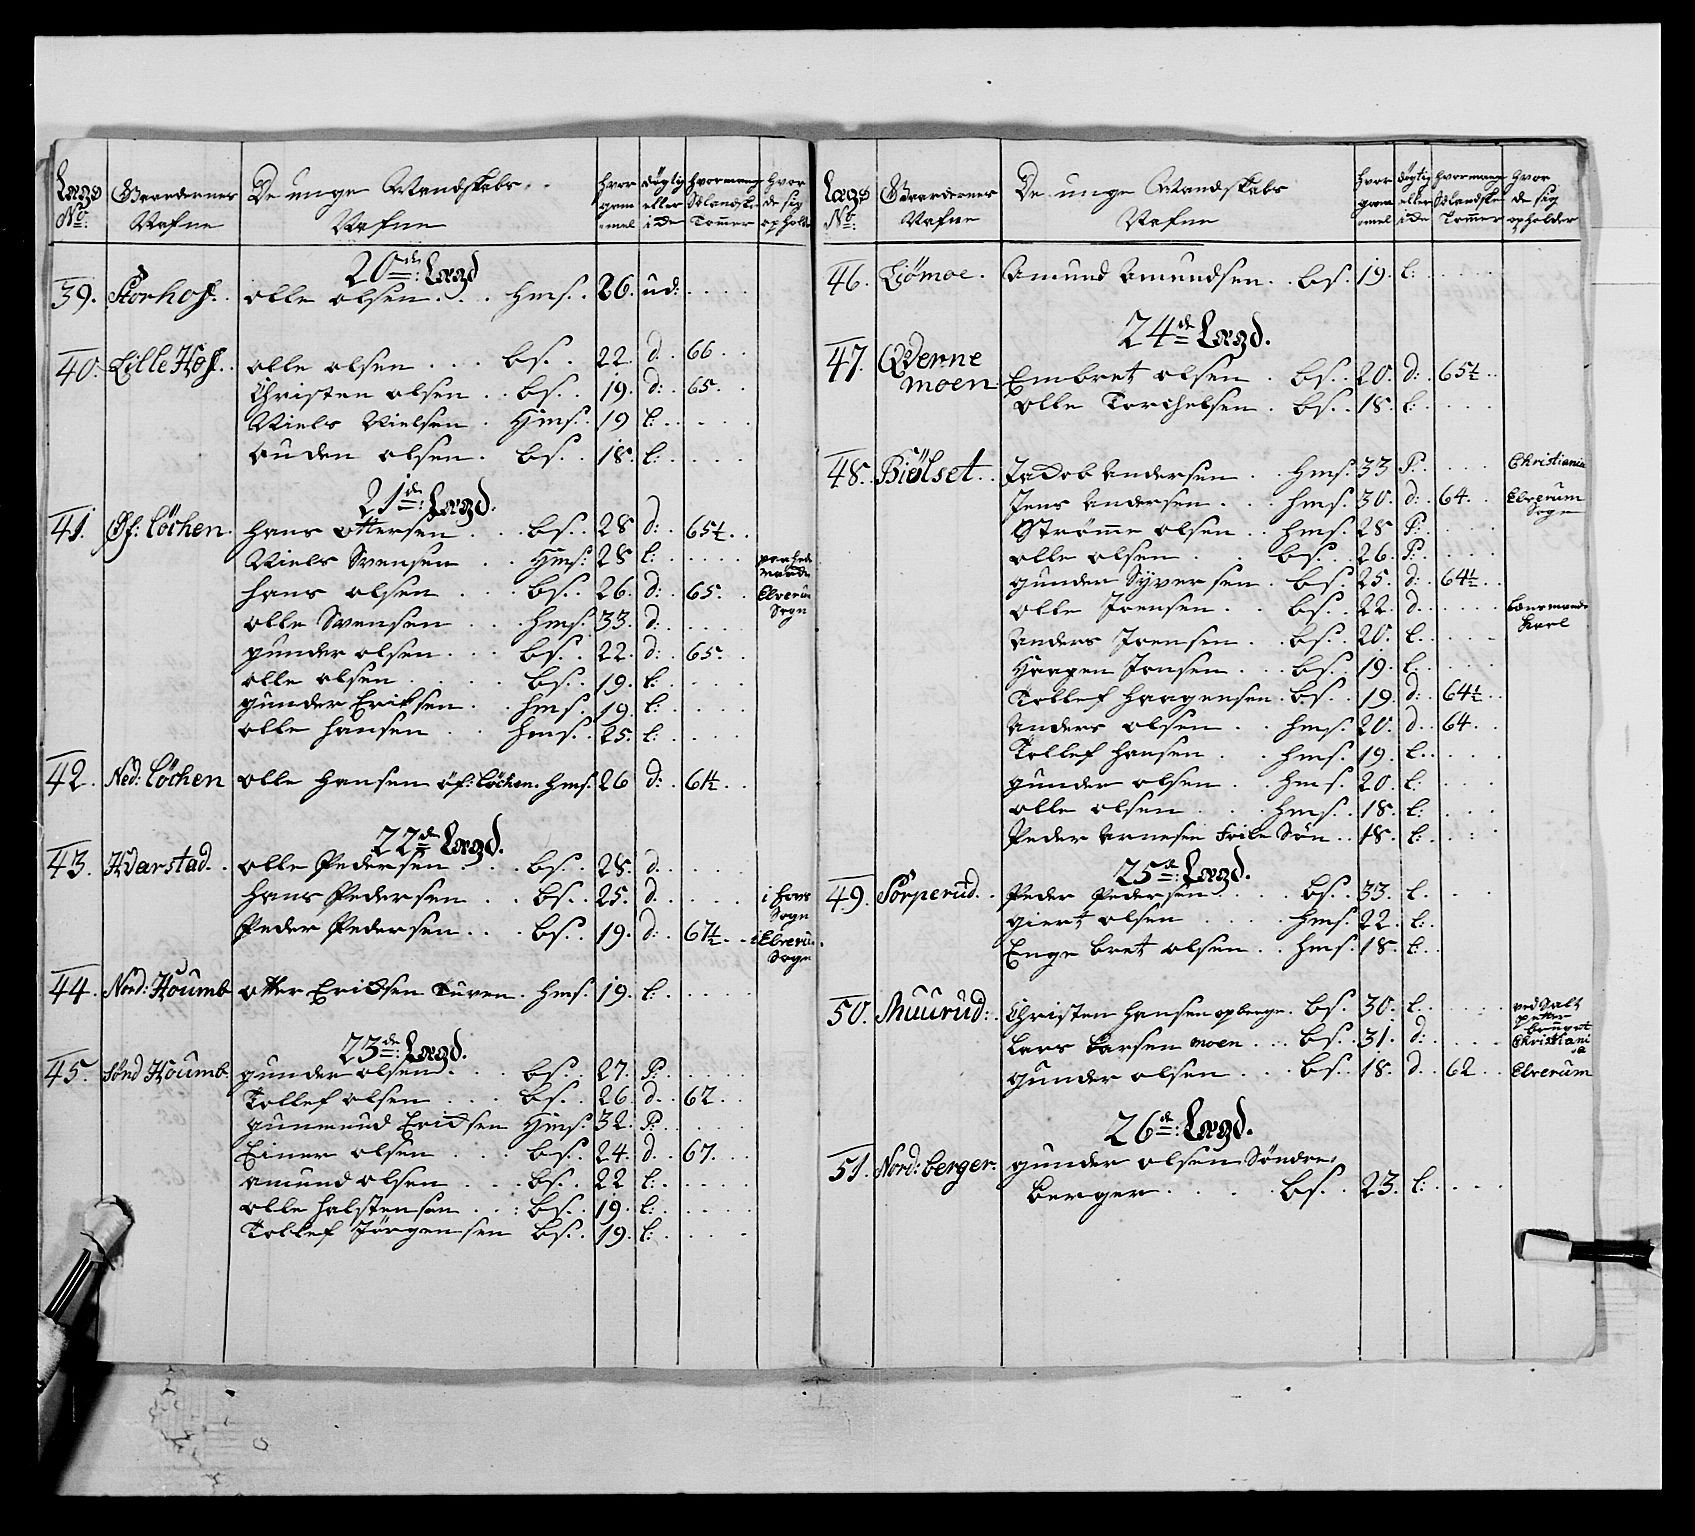 Lægs No: Gaardernes Nafne De unge Mandskabs Nafne hvor gam̅el dygtig eller i de hvor mang Sslandske Tom̅er hvor de sig opholder
20de: Lægd
39. Storhof. olle olsen hms. 26. ud:
40. Lille Hof. olle olsen bs. 22. d. 66
Christen olsen bs. 19. d: 65.
Niels Nielsen Hms. 19 l:
Auden olsen bs. 18. l:
21de: Lægd.
41. Øf: Löchen. hans ottersen bs. 28 d: 65½
Niels Svensen Hms: 28 l:
hans olsen bs. 26. d: 65. Elverum Sogn
olle Svensen hms. 33. d:
gunder olsen bs. 22. d: 65.
olle olsen bs. 19. l:
gunder Eriksen hms. 19. l:
olle hansen hms. 25. l:
42. Ned: Löchen olle hansen öf: Löchen. hms. 26 d: 61½
22de Lægd.
43. Hvarstad. olle Pedersen bs. 28. d.
hans Pedersen bs. 25. d. i hans Sogn
Peder Pedersen bs. 19. d: 67½ Elverum Sogn
44. Nord: Houmb otter Ericksen Turen. hms. 19. l:
23de: Lægd.
45. Sønd Houmb. gunder olsen bs. 27. P:
Tollef olsen bs. 26. d. 62
gunmund Ericksen Hms: 32. P:
Einer olsen bs. 24. d. 67.
amund olsen bs. 22 l:
olle halstensen bs. 19. l:
Tollef Jørgensen bs. 19. l:
Lægs No: Gaardernes Nafne De unge Mandskabs Nafne hvor gam̅el dygtig eller i de hvor mang Sslandske Tom̅er hvor de sig opholder
46. Liömoe. Amund Amundsen bs. 19. l:
24de Lægd.
47. Qverne moen Embret olsen bs. 20. d: 65½
olle Torchelsen bs. 18. l:
48. Biølset. Jacob Andersen hms. 33 P: Christiania
Jens Andersen hms. 30. d: 64 Elverum Sogn
Strøm̅e olsen hms. 28 P:
olle olsen bs. 26. P.
gunder Syversen bs. 25. d: 64½
olle Joensen bs. 22. d. Lensmands Karl
Anders Joensen bs. 20. l.
Haagen Jonsen bs. 19. l.
Tollef haagensen bs. 19 d: 64½
Anders olsen hms. 20. d. 64
Tollef hansen hms. 19. l.
gunder olsen hms. 20. l:
olle olsen hms. 18. l:
Peder Arnesen Frille Søn 18. l:
25de: Lægd.
49. Sorperud. Peder Pedersen bs. 33. l.
giert olsen hms. 22. l:
Engebret olsen hms. 18. l:
50. Muurud: Christen hansen opberge. bs. 30. l. ved Salt petter
Lars Larsen moen bs. 31. d: Christiania
gunder olsen bs. 18. d. 62 Elverum
26de: Lægd.
51. Nord: berger. gunder olsen Søndre
berger bs. 23. l: